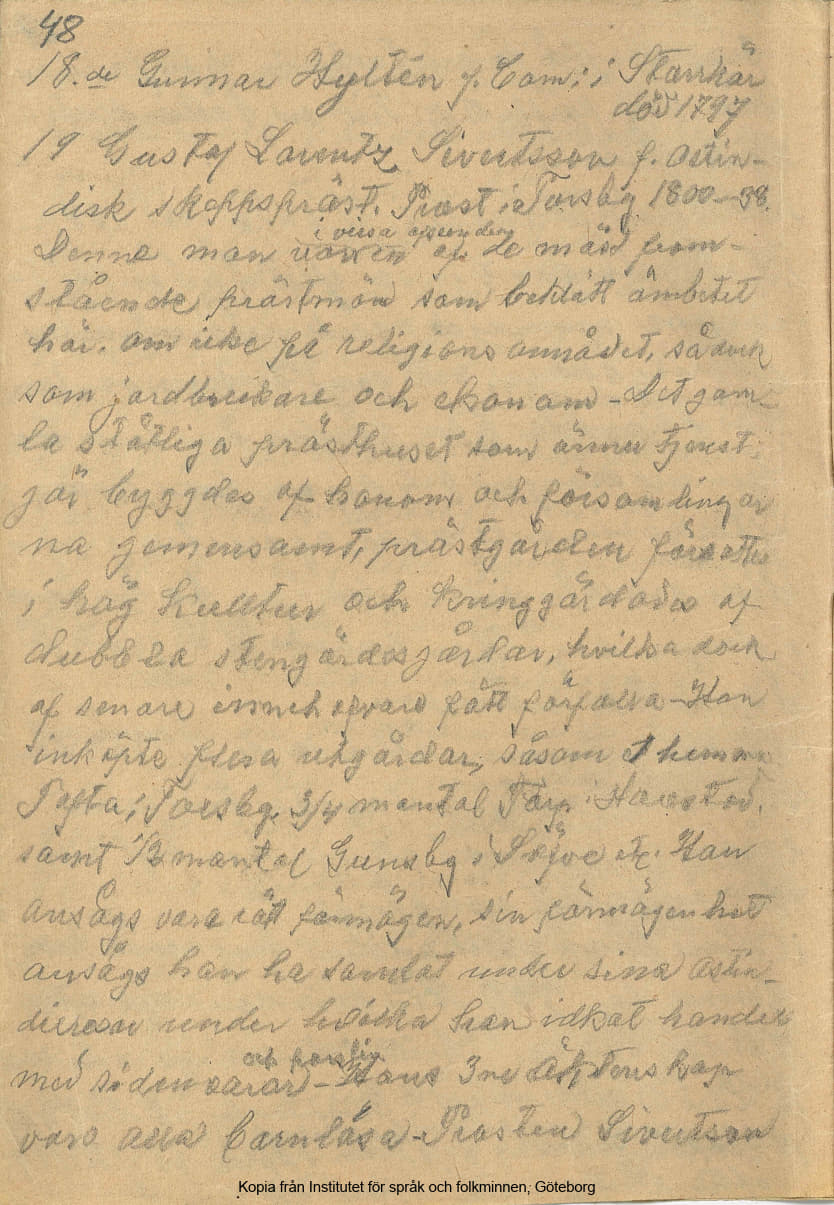 48
18.de Gunnar Hyltén f. Com; i Starrkär
död 1797
19 Gustaf Larentz Sivertsson f. ostin-
disk skeppspräst. Prost i Torsby 1800–38.
i vissa afseenden
Denne man en af de mäst fram-
stående prästmän som beklätt ämbetet
här. om icke på religions området, så dock
som jordbrukare och ekonom – Det gam-
la ståtliga prästhuset som ännu tjenst
gör byggdes af honom och församlingar
na gemensamt, prästgården försattes
i hög kulltur och kringgärdades af
dubbla stengärdesgårdar, hvilka dock
af senare innehafvare fått förfalla – Han
inköpte flera utgårdar, såsom 1 hemm
Tofta i Torsby, 3/4 mantal Torp i Harestad.
samt 1/2 mantal Gunsby i Säfve etc. Han
ansågs vara rätt förmögen, sin förmögenhet
ansågs han ha samlat under sina ostin-
dieresor under hvilka han idkat handel
och porslin
med siden varor – Hans 3ne äktenskap
voro alla barnlösa – Prosten Sivertson
Kopia från Institutet för språk och folkminnen, Göteborg